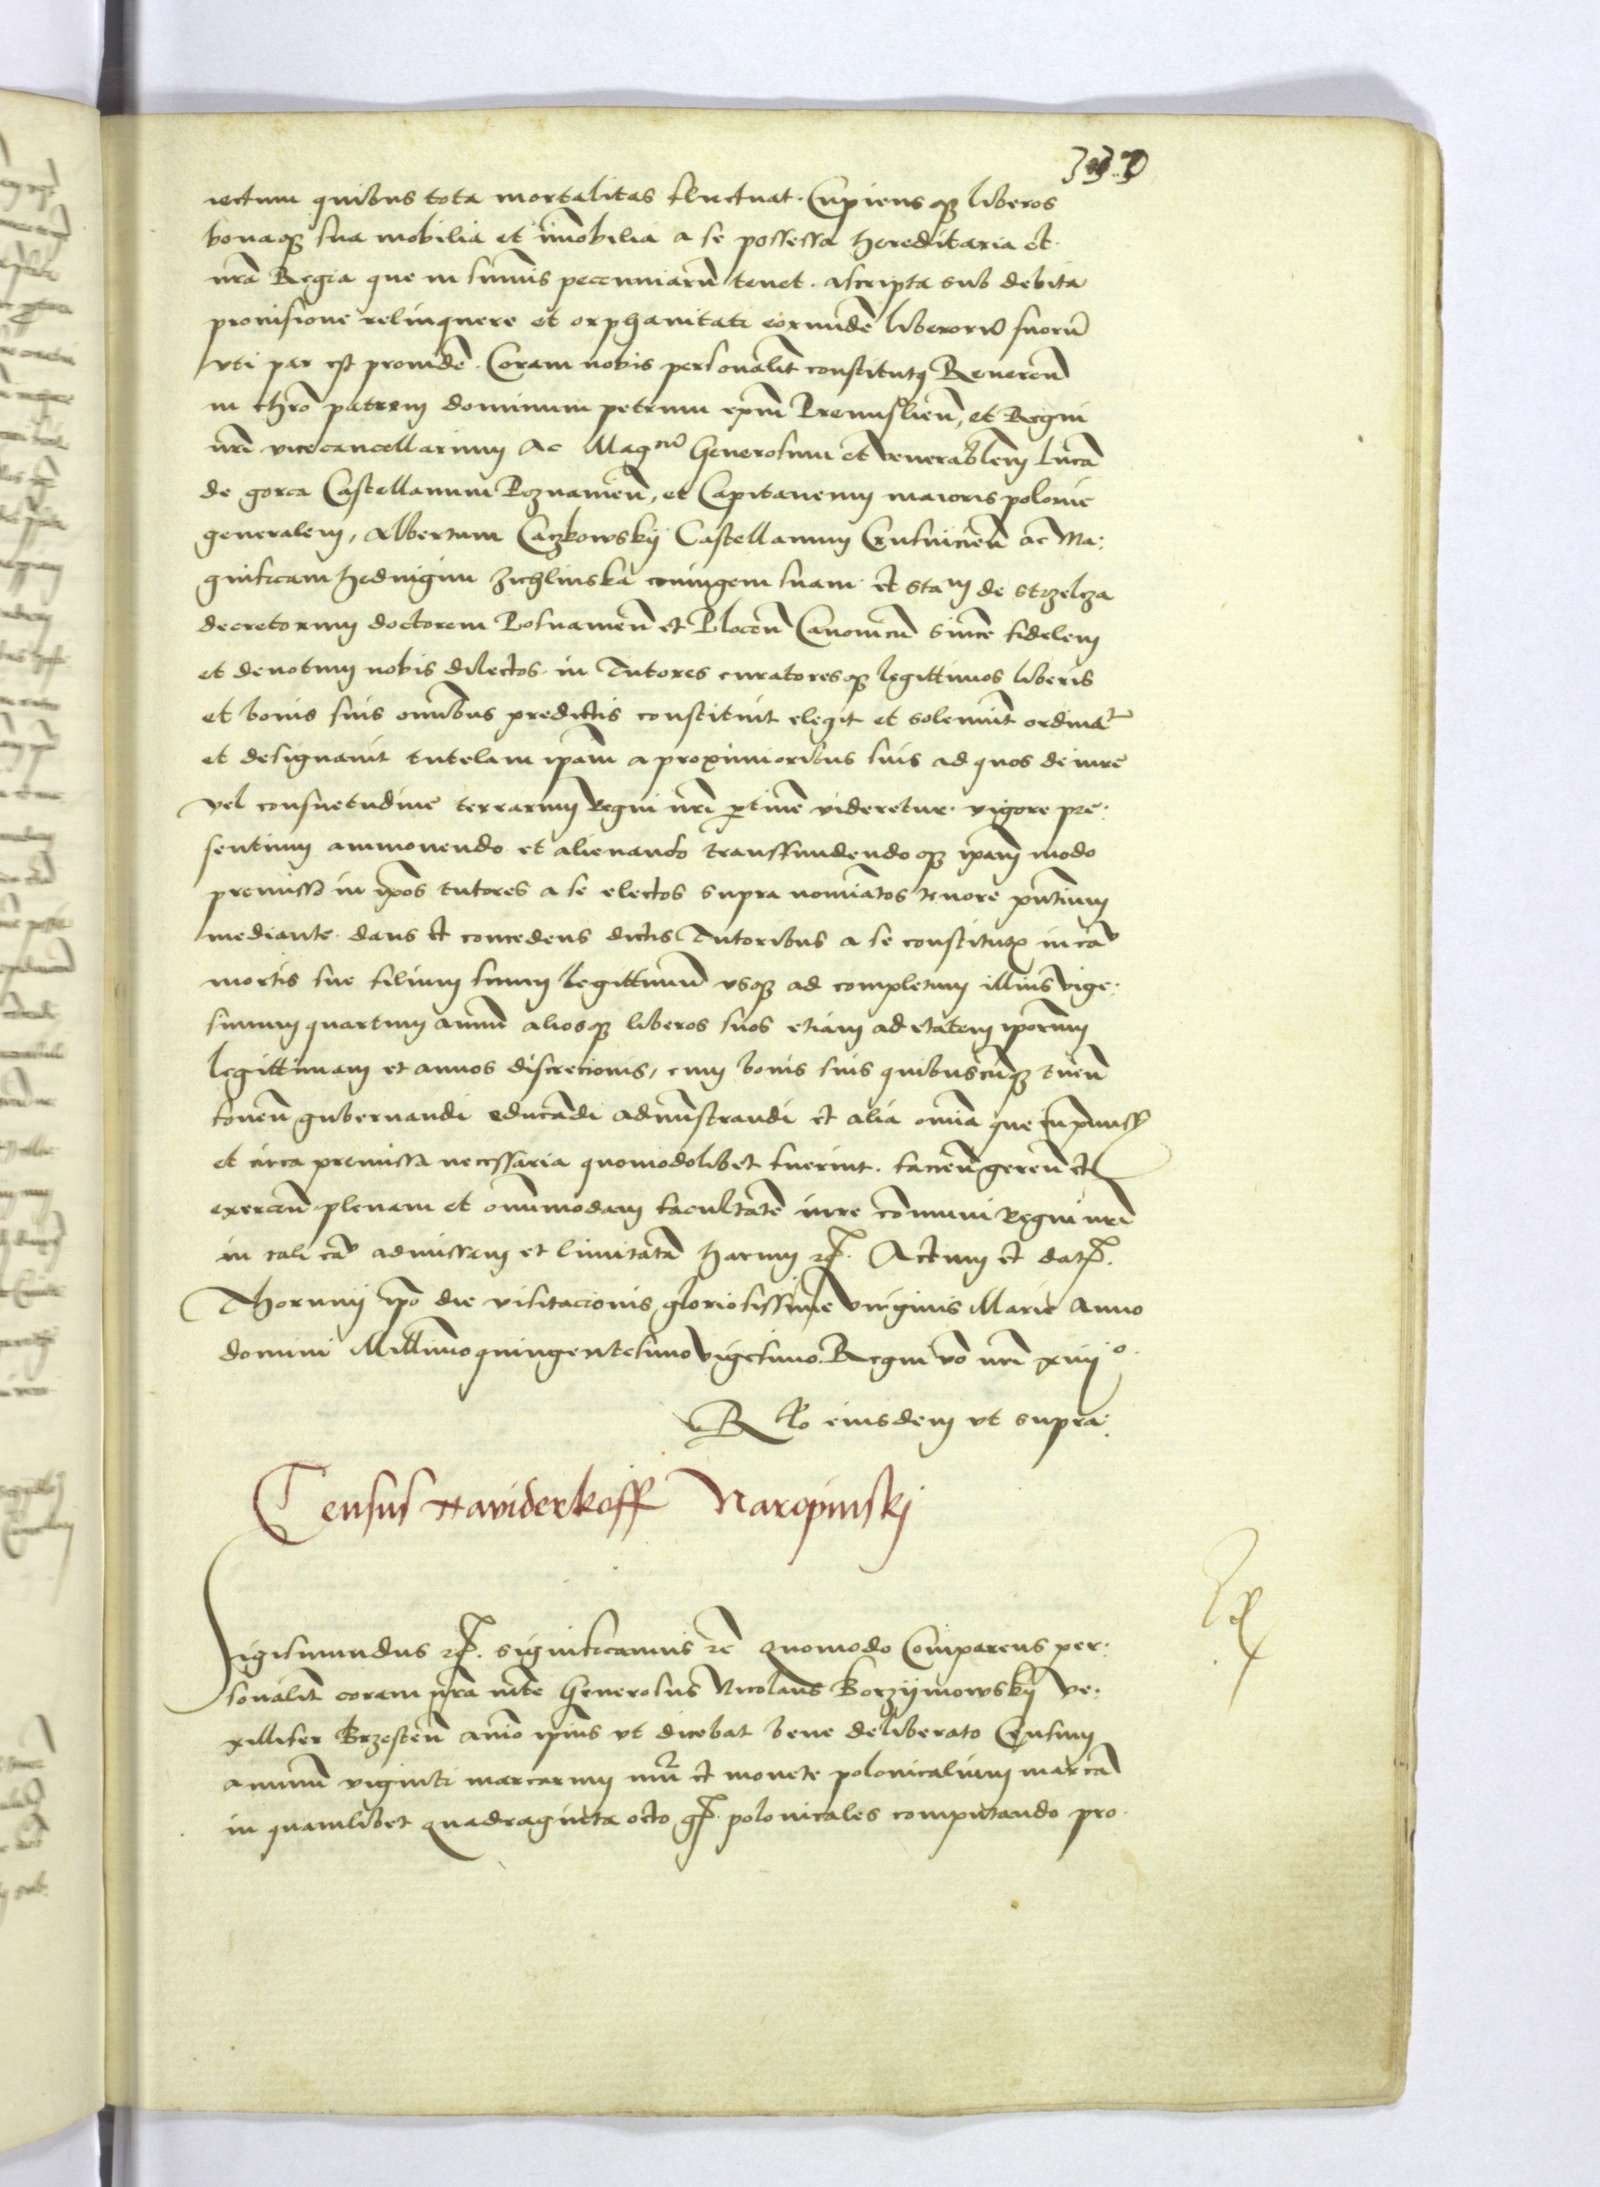 rectum quibus tota mortalitas fluctuat. Cupiens qz liberos
bonaqz sua mobilia et imobilia a se possessa hereditaria et
nra Regia que in sumis pecunniaru tenet. ascripta sub debita
provisione relinquere et orphanitati eorunde liberoru suoru
uti par est provide. Coram nobis personalit constitutus Reveren
in chro patrem dominum petrum epm Premislien, et Regni
nri vicecancellarium Ac Magcu Generosum et venerablem Luca
de gorca Castellanum Poznanien, et Capitaneum maioris polonie
generalem, Albertum Castellanum ac Ma:
gnificam hedvigim Zichlinska coniugem suam et Stam de Strzelcza
decretorum doctorem Posnanien et Plocen Canonicu since fidelem
et devotum nobis dilectos. in Tutores curatoresqz legittimos liberis
et bonis suis omibus predictis constituit elegit et solemnit ordinat
et designavit tutelam ipam a proximioribus suis ad quos de iure
vel consuetudine terrarum Regni nri ptine videretur. vigore pre:
sentium ammovendo et alienando transfundendoqz ipam modo
premisso in ipos tutores a se electos supra nomiatos tenore pntium
mediante. dans et concedens dictis Tutoribus a se constitutis in cau
mortis sue filium suum legittimum usqz ad completum illius vige:
simum quartum annu aliosqz liberos suos etiam ad etatem iporum
legittimam et annos discrecionis, cum bonis suis quibuscunqz tuen
foven gubernandi educandi administrandi et alia omia que in pmiss
et circa premissa necessaria quomodolibet fuerint. facien geren et
exercen plenam et omnimodam facultate iure comuni Regni nri
in tali cau admissam et limitata harum rc. Actum et dat.
Thorunij ipo die visitacionis gloriosissime virginis Marie Anno
domini Millimoquingentesimo vigesimo. Regni vo nri xiiijo.
Rlo eiusdem ut supra.
Census Naropinskj
Sigismundus rc. significamus rc Quomodo Comparens per:
sonalit coram nra mte Generosus Nicolaus Borzijmowskij ve:
xillifer Brzesten aimo ipius ut dicebat bene deliberato Censum
annuu viginti marcarum et monete polonicalium marca
in quamlibet quadraginta octo gr. polonicales computando pro